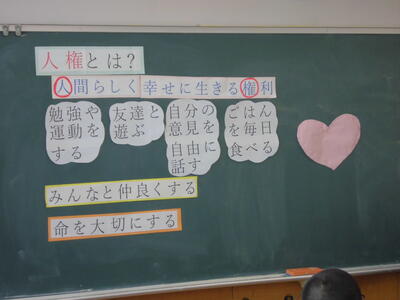 人権とは？
人間らしく幸せに生きる権利
勉強や
運動を
する
友達と
遊ぶ
自分の
意見を
自由に
話す
ごはん
を毎日
食べる
みんなと仲良くする
命を大切にする